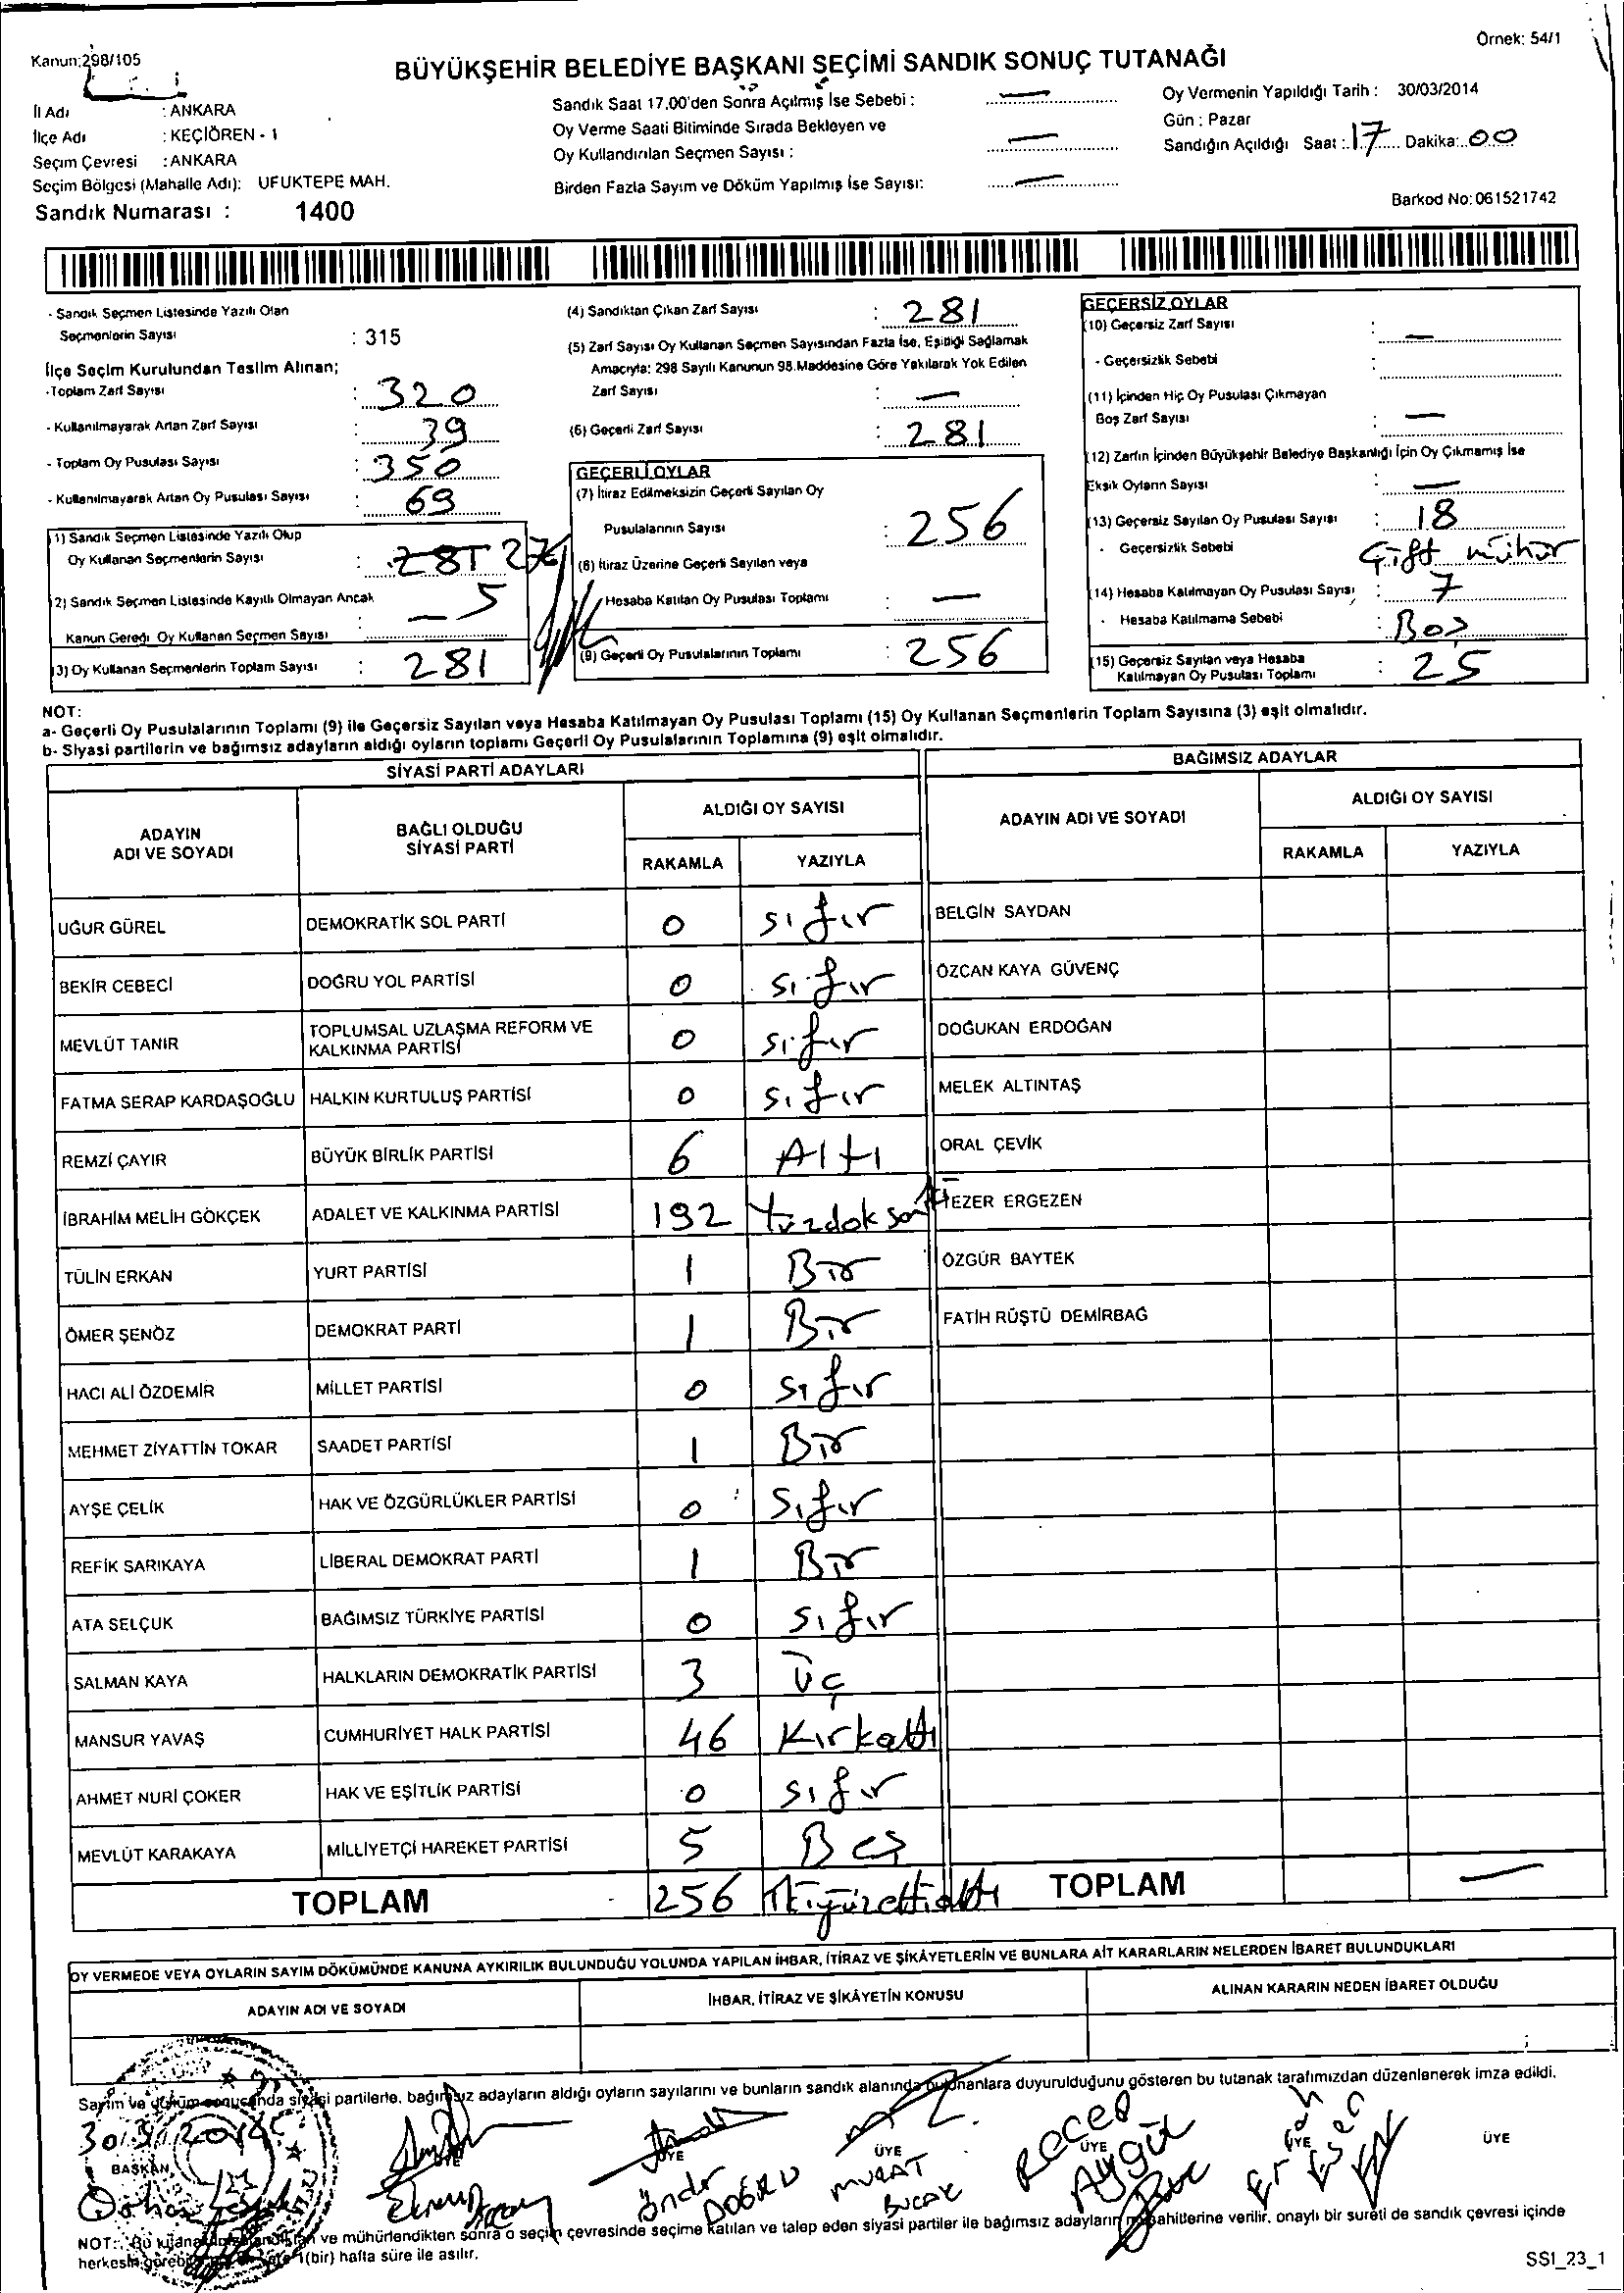 Örnek: 54/1
Kanun:298/105
BÜYÜKŞEHİR BELEDİYE BAŞKANI SEÇİMİ SANDIK SONUÇ TUTANAĞI
İl Adı : ANKARA
İlçe Adı : KEÇİÖREN - 1
Seçim Çevresi : ANKARA
Seçim Bölgesi (Mahalle Adı): UFUKTEPE MAH.
Sandık Numarası : 1400
Sandık Saat 17.00'den Sonra Açılmış İse Sebebi : —
Oy Verme Saati Bitiminde Sırada Bekleyen ve
Oy Kullandırılan Seçmen Sayısı : —
Birden Fazla Sayım ve Döküm Yapılmış İse Sayısı: —
Oy Vermenin Yapıldığı Tarih : 30/03/2014
Gün : Pazar
Sandığın Açıldığı Saat : 17 Dakika: 00
Barkod No: 061521742
- Sandık Seçmen Listesinde Yazılı Olan
Seçmenlerin Sayısı : 315
İlçe Seçim Kurulundan Teslim Alınan;
- Toplam Zarf Sayısı : 320
- Kullanılmayarak Artan Zarf Sayısı : 39
- Toplam Oy Pusulası Sayısı : 350
- Kullanılmayarak Artan Oy Pusulası Sayısı : 69
(1) Sandık Seçmen Listesinde Yazılı Olup
Oy Kullanan Seçmenlerin Sayısı : 281 276
(2) Sandık Seçmen Listesinde Kayıtlı Olmayan Ancak
Kanun Gereği Oy Kullanan Seçmen Sayısı : — 5
(3) Oy Kullanan Seçmenlerin Toplam Sayısı : 281
(4) Sandıktan Çıkan Zarf Sayısı : 281
(5) Zarf Sayısı Oy Kullanan Seçmen Sayısından Fazla İse, Eşitliği Sağlamak
Amacıyla: 298 Sayılı Kanunun 98.Maddesine Göre Yakılarak Yok Edilen
Zarf Sayısı : —
(6) Geçerli Zarf Sayısı : 281
GEÇERLİ OYLAR
(7) İtiraz Edilmeksizin Geçerli Sayılan Oy
Pusulalarının Sayısı : 256
(8) İtiraz Üzerine Geçerli Sayılan veya
Hesaba Katılan Oy Pusulası Toplamı : —
(9) Geçerli Oy Pusulalarının Toplamı : 256
GEÇERSİZ OYLAR
(10) Geçersiz Zarf Sayısı : —
- Geçersizlik Sebebi :
(11) İçinden Hiç Oy Pusulası Çıkmayan
Boş Zarf Sayısı : —
(12) Zarfın İçinden Büyükşehir Belediye Başkanlığı İçin Oy Çıkmamış İse
Eksik Oyların Sayısı : —
(13) Geçersiz Sayılan Oy Pusulası Sayısı : 18
- Geçersizlik Sebebi Çift mühür
(14) Hesaba Katılmayan Oy Pusulası Sayısı : 7
- Hesaba Katılmama Sebebi : Boş
(15) Geçersiz Sayılan veya Hesaba
Katılmayan Oy Pusulası Toplamı : 25
NOT:
a- Geçerli Oy Pusulalarının Toplamı (9) ile Geçersiz Sayılan veya Hesaba Katılmayan Oy Pusulası Toplamı (15) Oy Kullanan Seçmenlerin Toplam Sayısına (3) eşit olmalıdır.
b- Siyasi partilerin ve bağımsız adayların aldığı oyların toplamı Geçerli Oy Pusulalarının Toplamına (9) eşit olmalıdır.
SİYASİ PARTİ ADAYLARI BAĞIMSIZ ADAYLAR
ADAYIN ADI VE SOYADI BAĞLI OLDUĞU SİYASİ PARTİ ALDIĞI OY SAYISI ADAYIN ADI VE SOYADI ALDIĞI OY SAYISI
RAKAMLA YAZIYLA RAKAMLA YAZIYLA
UĞUR GÜREL DEMOKRATİK SOL PARTİ 0 sıfır BELGİN SAYDAN
BEKİR CEBECİ DOĞRU YOL PARTİSİ 0 sıfır ÖZCAN KAYA GÜVENÇ
MEVLÜT TANIR TOPLUMSAL UZLAŞMA REFORM VE KALKINMA PARTİSİ 0 sıfır DOĞUKAN ERDOĞAN
FATMA SERAP KARDAŞOĞLU HALKIN KURTULUŞ PARTİSİ 0 sıfır MELEK ALTINTAŞ
REMZİ ÇAYIR BÜYÜK BİRLİK PARTİSİ 6 Altı ORAL ÇEVİK
İBRAHİM MELİH GÖKÇEK ADALET VE KALKINMA PARTİSİ 192 Yüzdoksan TEZER ERGEZEN
TÜLİN ERKAN YURT PARTİSİ 1 Bir ÖZGÜR BAYTEK
ÖMER ŞENÖZ DEMOKRAT PARTİ 1 Bir FATİH RÜŞTÜ DEMİRBAĞ
HACI ALİ ÖZDEMİR MİLLET PARTİSİ 0 sıfır
MEHMET ZİYATTİN TOKAR SAADET PARTİSİ 1 Bir
AYŞE ÇELİK HAK VE ÖZGÜRLÜKLER PARTİSİ 0 sıfır
REFİK SARIKAYA LİBERAL DEMOKRAT PARTİ 1 Bir
ATA SELÇUK BAĞIMSIZ TÜRKİYE PARTİSİ 0 sıfır
SALMAN KAYA HALKLARIN DEMOKRATİK PARTİSİ 3 üç
MANSUR YAVAŞ CUMHURİYET HALK PARTİSİ 46 Kırkaltı
AHMET NURİ ÇOKER HAK VE EŞİTLİK PARTİSİ 0 sıfır
MEVLÜT KARAKAYA MİLLİYETÇİ HAREKET PARTİSİ 5 Beş
TOPLAM 256 İkiyüzellialtı TOPLAM —
OY VERMEDE VEYA OYLARIN SAYIM DÖKÜMÜNDE KANUNA AYKIRILIK BULUNDUĞU YOLUNDA YAPILAN İHBAR, İTİRAZ VE ŞİKÂYETLERİN VE BUNLARA AİT KARARLARIN NELERDEN İBARET BULUNDUKLARI
ADAYIN ADI VE SOYADI İHBAR, İTİRAZ VE ŞİKÂYETİN KONUSU ALINAN KARARIN NEDEN İBARET OLDUĞU
Sayım ve döküm sonucunda siyasi partilerle, bağımsız adayların aldığı oyların sayılarını ve bunların sandık alanında bulunanlara duyurulduğunu gösteren bu tutanak tarafımızdan düzenlenerek imza edildi.
BAŞKAN ÜYE ÜYE ÜYE ÜYE ÜYE ÜYE
Önder DOĞRU MURAT BUCAK RECEP Aygül
NOT: Bu tutanak ve mühürlendikten sonra o seçim çevresinde seçime katılan ve talep eden siyasi partiler ile bağımsız adayların müşahitlerine verilir, onaylı bir sureti de sandık çevresi içinde
herkesin 1(bir) hafta süre ile asılır.
SSI_23_1